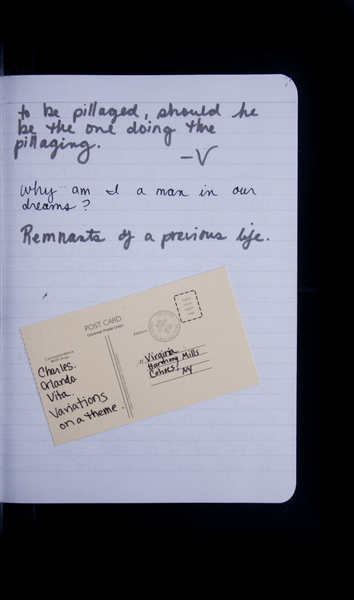 to be pillaged, should he
be the one doing the
pillaging.
—V
Why am I a man in our
dreams?
Remnants of a previous life.
POST CARD
Address
Charles.
Orlando
Vita.
Variations
on a theme.
Virginia
Harmony Mills
Cohoes,
NY